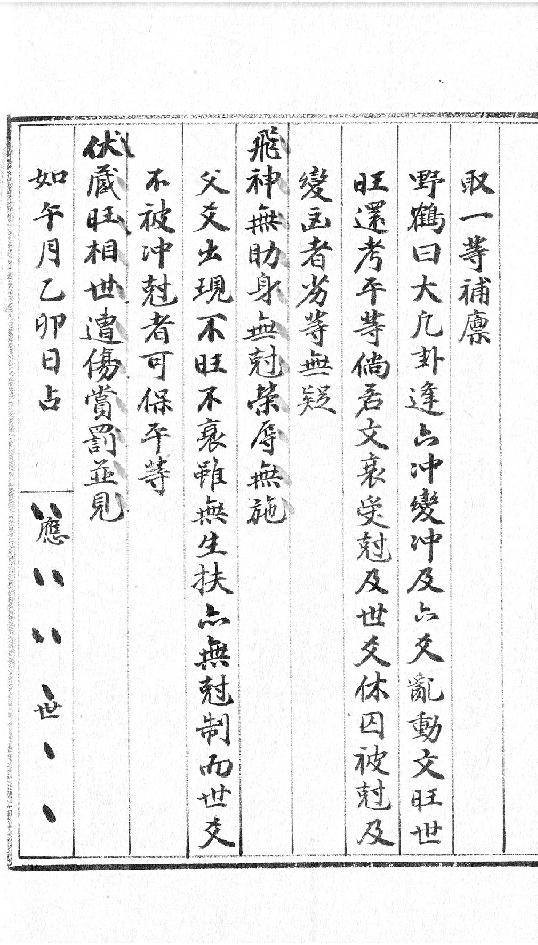 取一等補廪
野鶴曰大凡卦逢六冲變冲及六爻亂動文旺世
旺還考平等倘若文衰受尅及世爻休囚被尅及
變凶者劣等無疑
飛神無助身無尅榮辱無施
父爻出現不旺不衰雖無生扶亦無尅制而世爻
不被冲尅者可保平等
伏藏旺相世遭傷賞罰並見
如午月乙卯日占
應
世